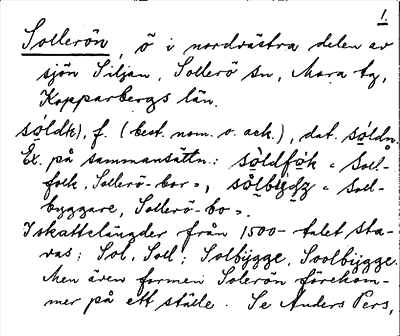 1.
Sollerön, ö i nordvästra delen av
sjön Siljan, Sollerö sn, Mora tg,
Kopparbergs län.
söldk), f. (best. nom. o. ack.), dat. söldn.
Ex. på sammansättn.: söldfök "Soll-
folk, Sollerö-bor", sölbygdz "Soll-
byggare, Sollerö-bo".
I skattelängder från 1500-talet sta-
vas: Sol, Soll; Solbÿgge, Soolbÿgge.
Men även formen Solerön förekom-
mer på ett ställe. Se Anders Pers,